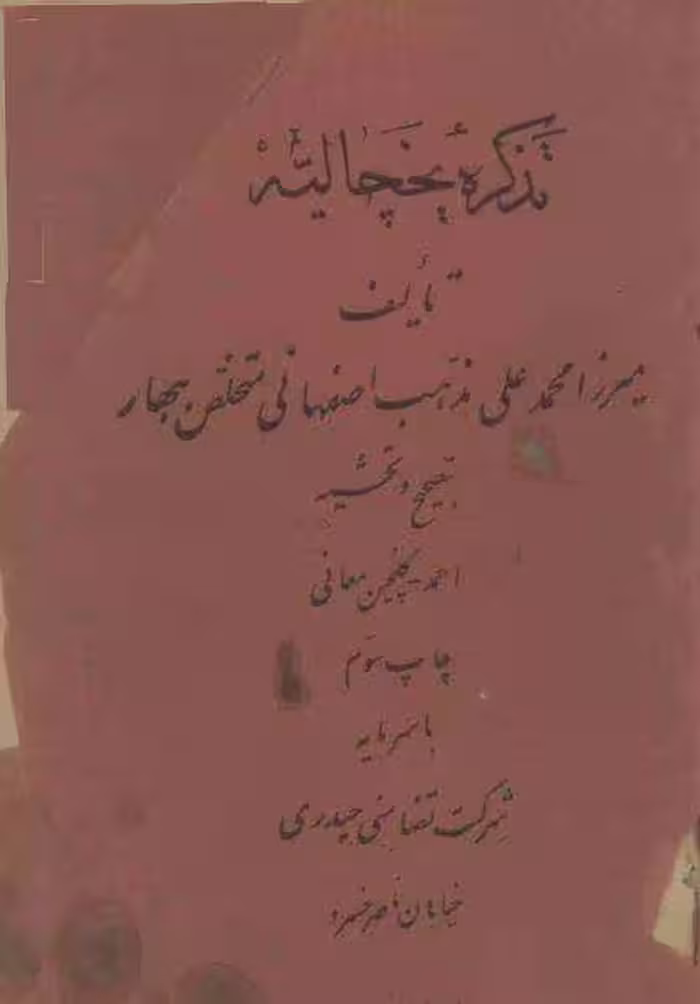 تذکرهٔ یخچالیّه
تألیف
میرزا محمد علی مذهب اصفهانی متخلص ببهار
بتصحیح و تحشیه
احمد گلچین معانی
چاپ سوّم
با سرمایه
شرکت تضامنی حیدری
خیابان ناصر خسرو